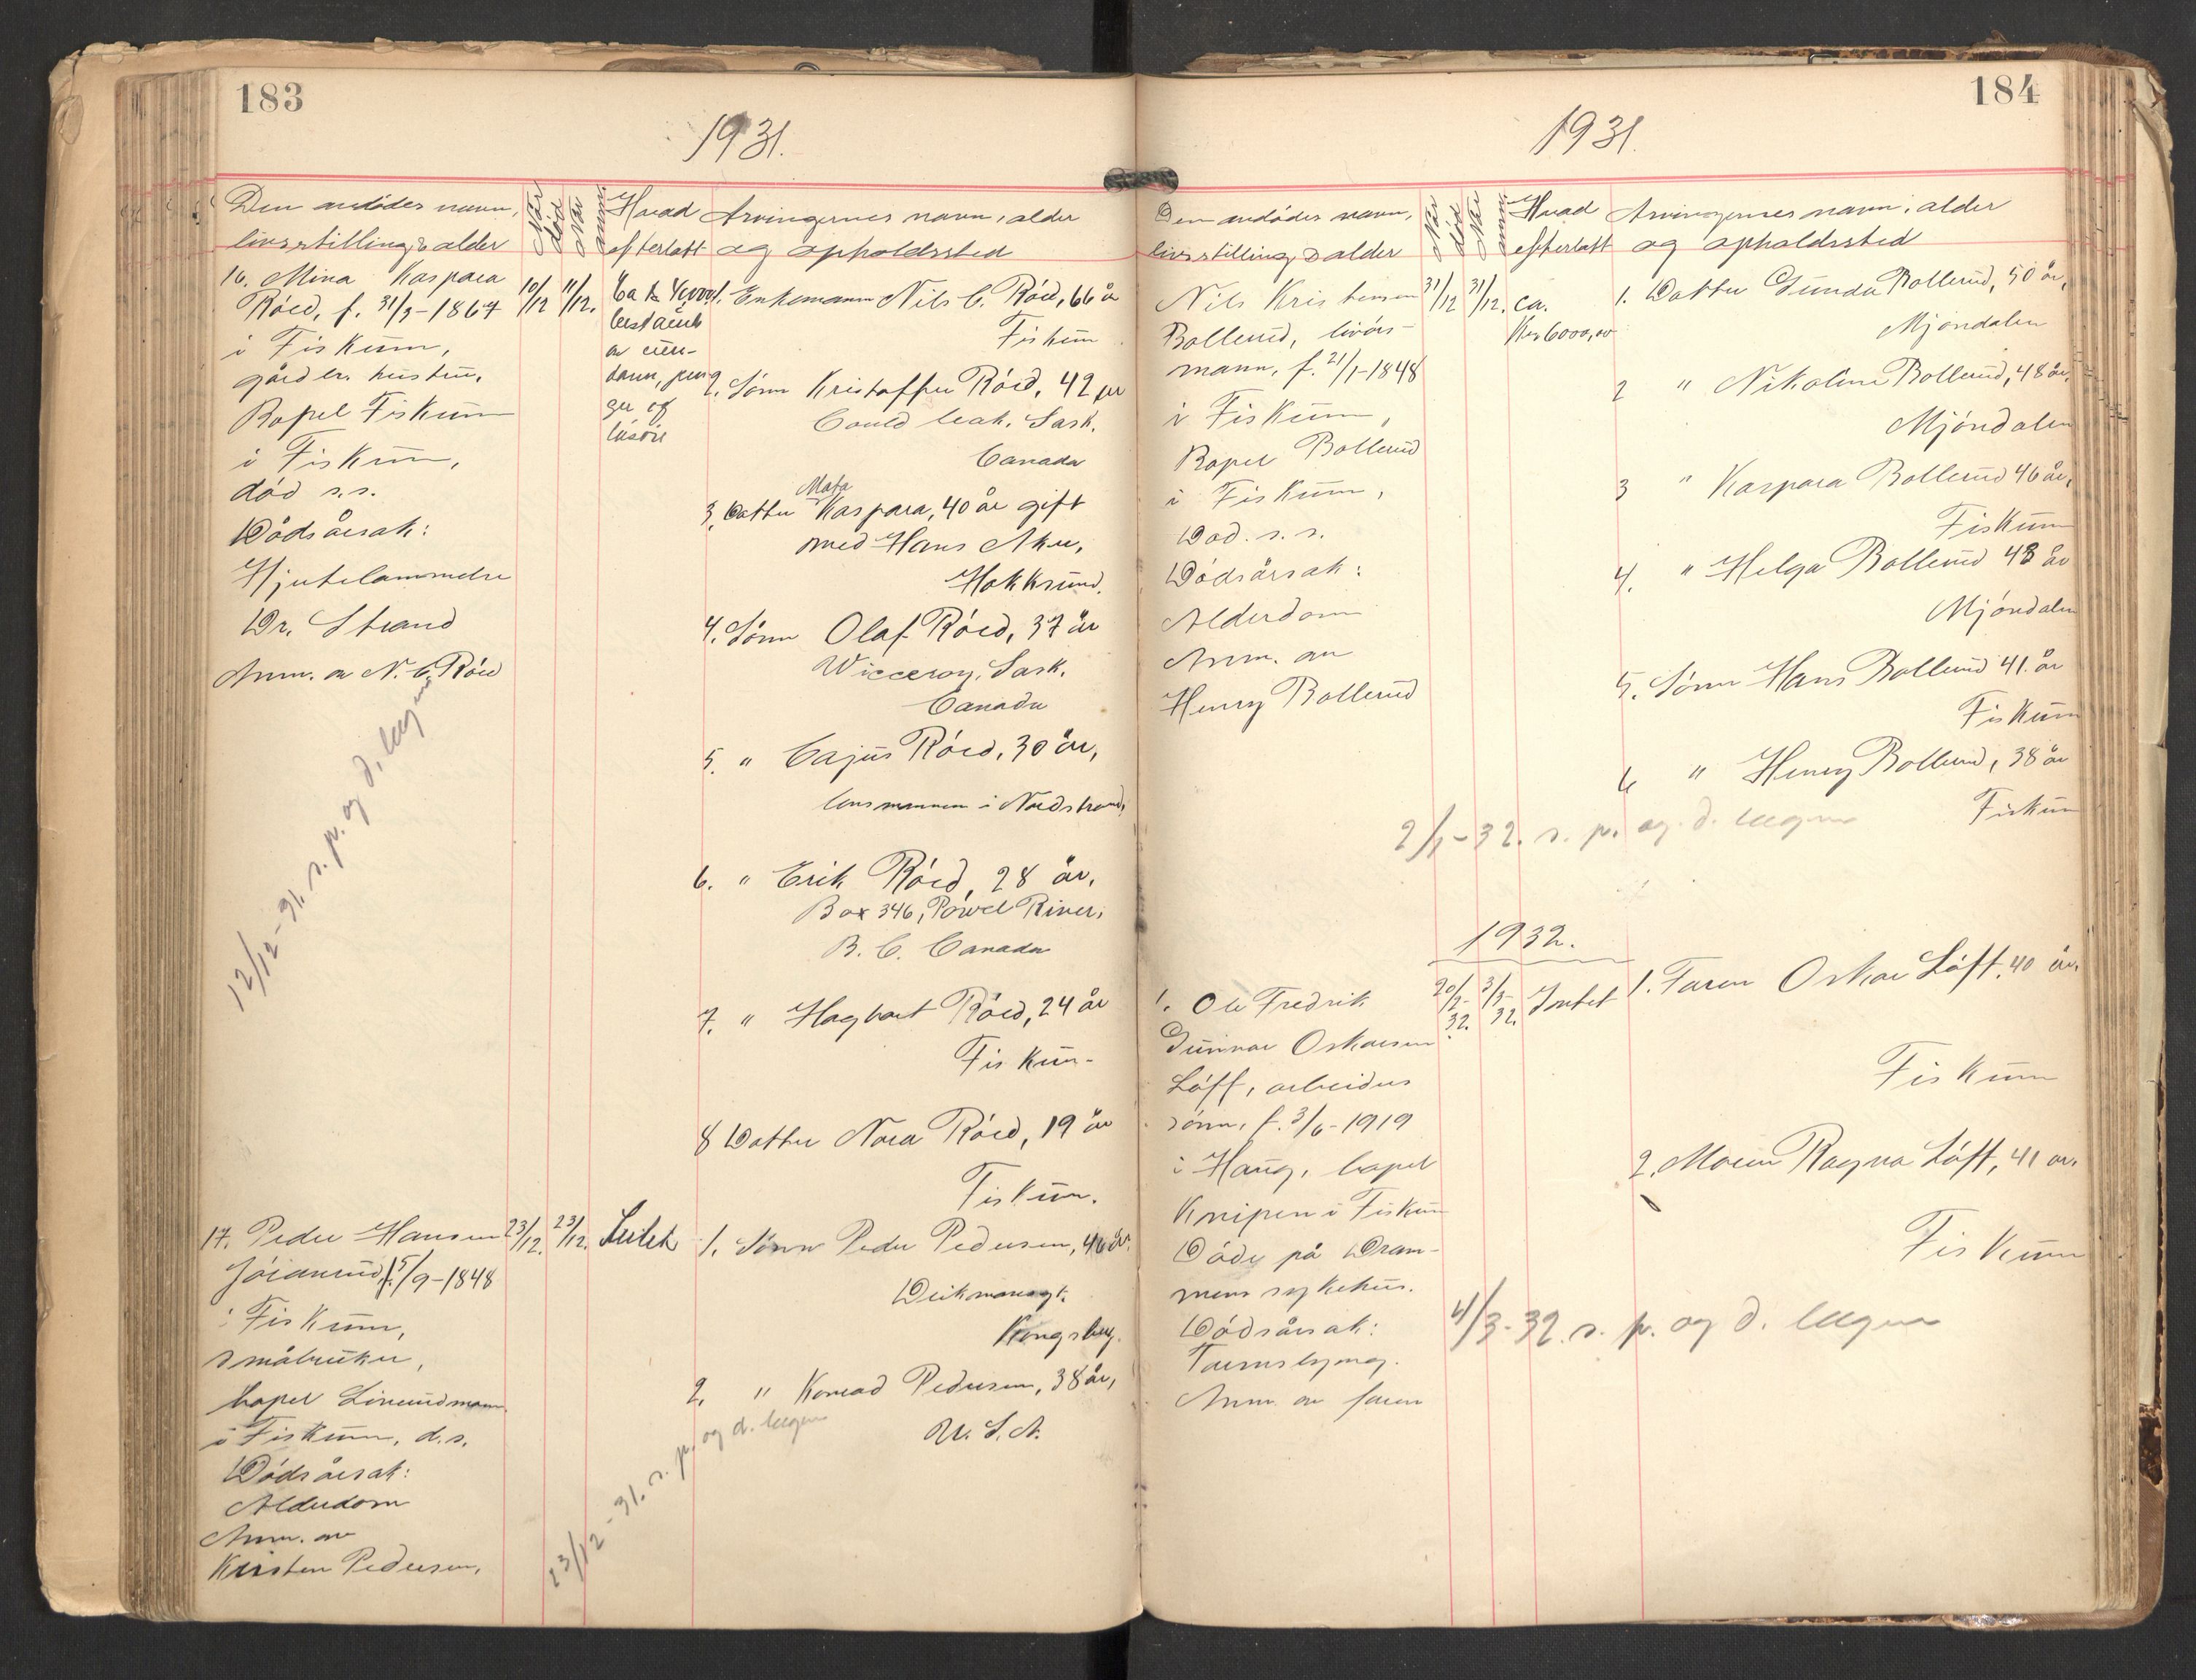 183
1931.
Den avdødes navn,
livsstilling & alder
Når
død
Når
anm.
Hvad
efterlatt
Arvingernes navn, alder
og opholdssted
16. Mina Kaspara
Røed, f. 31/3-1867
i Fiskum,
gårdbr. hustru,
Bopel Fiskum
i Fiskum,
død s.s.
Dødsårsak:
Hjertelammelse
Dr. Strand
Anm. av N. C. Røed
12/12-31. s. p. og d. legem
10/12
11/12.
Ca kr 4000
bestående
av eien-
dom, pen-
ger og
løsøre
1. Enkemann Nils C. Røed, 66 år
Fiskum
2. Sønn Kristoffer Røed, 42 år
Sask.
Canada
3. Datter Kaspara, 40 år gift
med Hans Aker,
Hokksund.
4. Sønn Olaf Røed, 37 år
Wicceroy, Sask.
Canada
5. " Cajus Røed, 30 år,
lensmannen i Nordstrand,
6. " Erik Røed, 28 år.
Box 346, Powel River,
B. C. Canada
7. " Hagbart Røed, 24 år
Fiskum-
8 Datter Nora Røed, 19 år
Fiskum.
17. Peder Hansen
f. 5/9-1848
i Fiskum,
småbruker,
bopel
i Fiskum, d.s.
Dødsårsak:
Alderdom
Anm. av
Kirsten Pedersen.
23/12.
23/12.
1. Sønn Peder Pedersen, 46 år.
Kongsberg.
2. " Konrad Pedersen, 38 år,
U. S. A.
23/12-31. s. p. og d. legem
184
1931.
Den avdødes navn,
livsstilling & alder
Når
død
Når
anm.
Hvad
efterlatt
Arvingernes navn, alder
og opholdssted
Nils Kristensen
Bollerud, livørs-
mann, f. 21/1-1848
i Fiskum,
Bopel Bollerud
i Fiskum,
Død. s. s.
Dødsårsak:
Alderdom
Anm. av
Henry Bollerud
31/12
31/12.
ca.
Kr 6000,00
1. Datter Gunda Bollerud, 50 år,
Mjøndalen
2 " Nikoline Bollerud, 48 år,
Mjøndalen
3 " Kaspara Bollerud 46 år,
Fiskum
4. " Helga Bollerud 43 år
Mjøndalen
5. Sønn Hans Bollerud 41 år
Fiskum
6 " Henry Bollerud, 38 år
Fiskum
2/1-32. s. p. og d. legem
1932.
1. Ole Fredrik
Gunnar Oskarsen
Løff, arbeider
sønn, f. 3/6-1919
i Haug, bopel
Knipen i Fiskum
Døde på Dram-
mens sykehus.
Dødsårsak:
Tarmslyng.
Anm. av faren
20/2-32.
3/3-32.
Intet
1. Faren Oskar Løft, 40 år,
Fiskum
2. Moren Ragna Løft, 41 år.
Fiskum
4/3-32. s. p. og d. legem